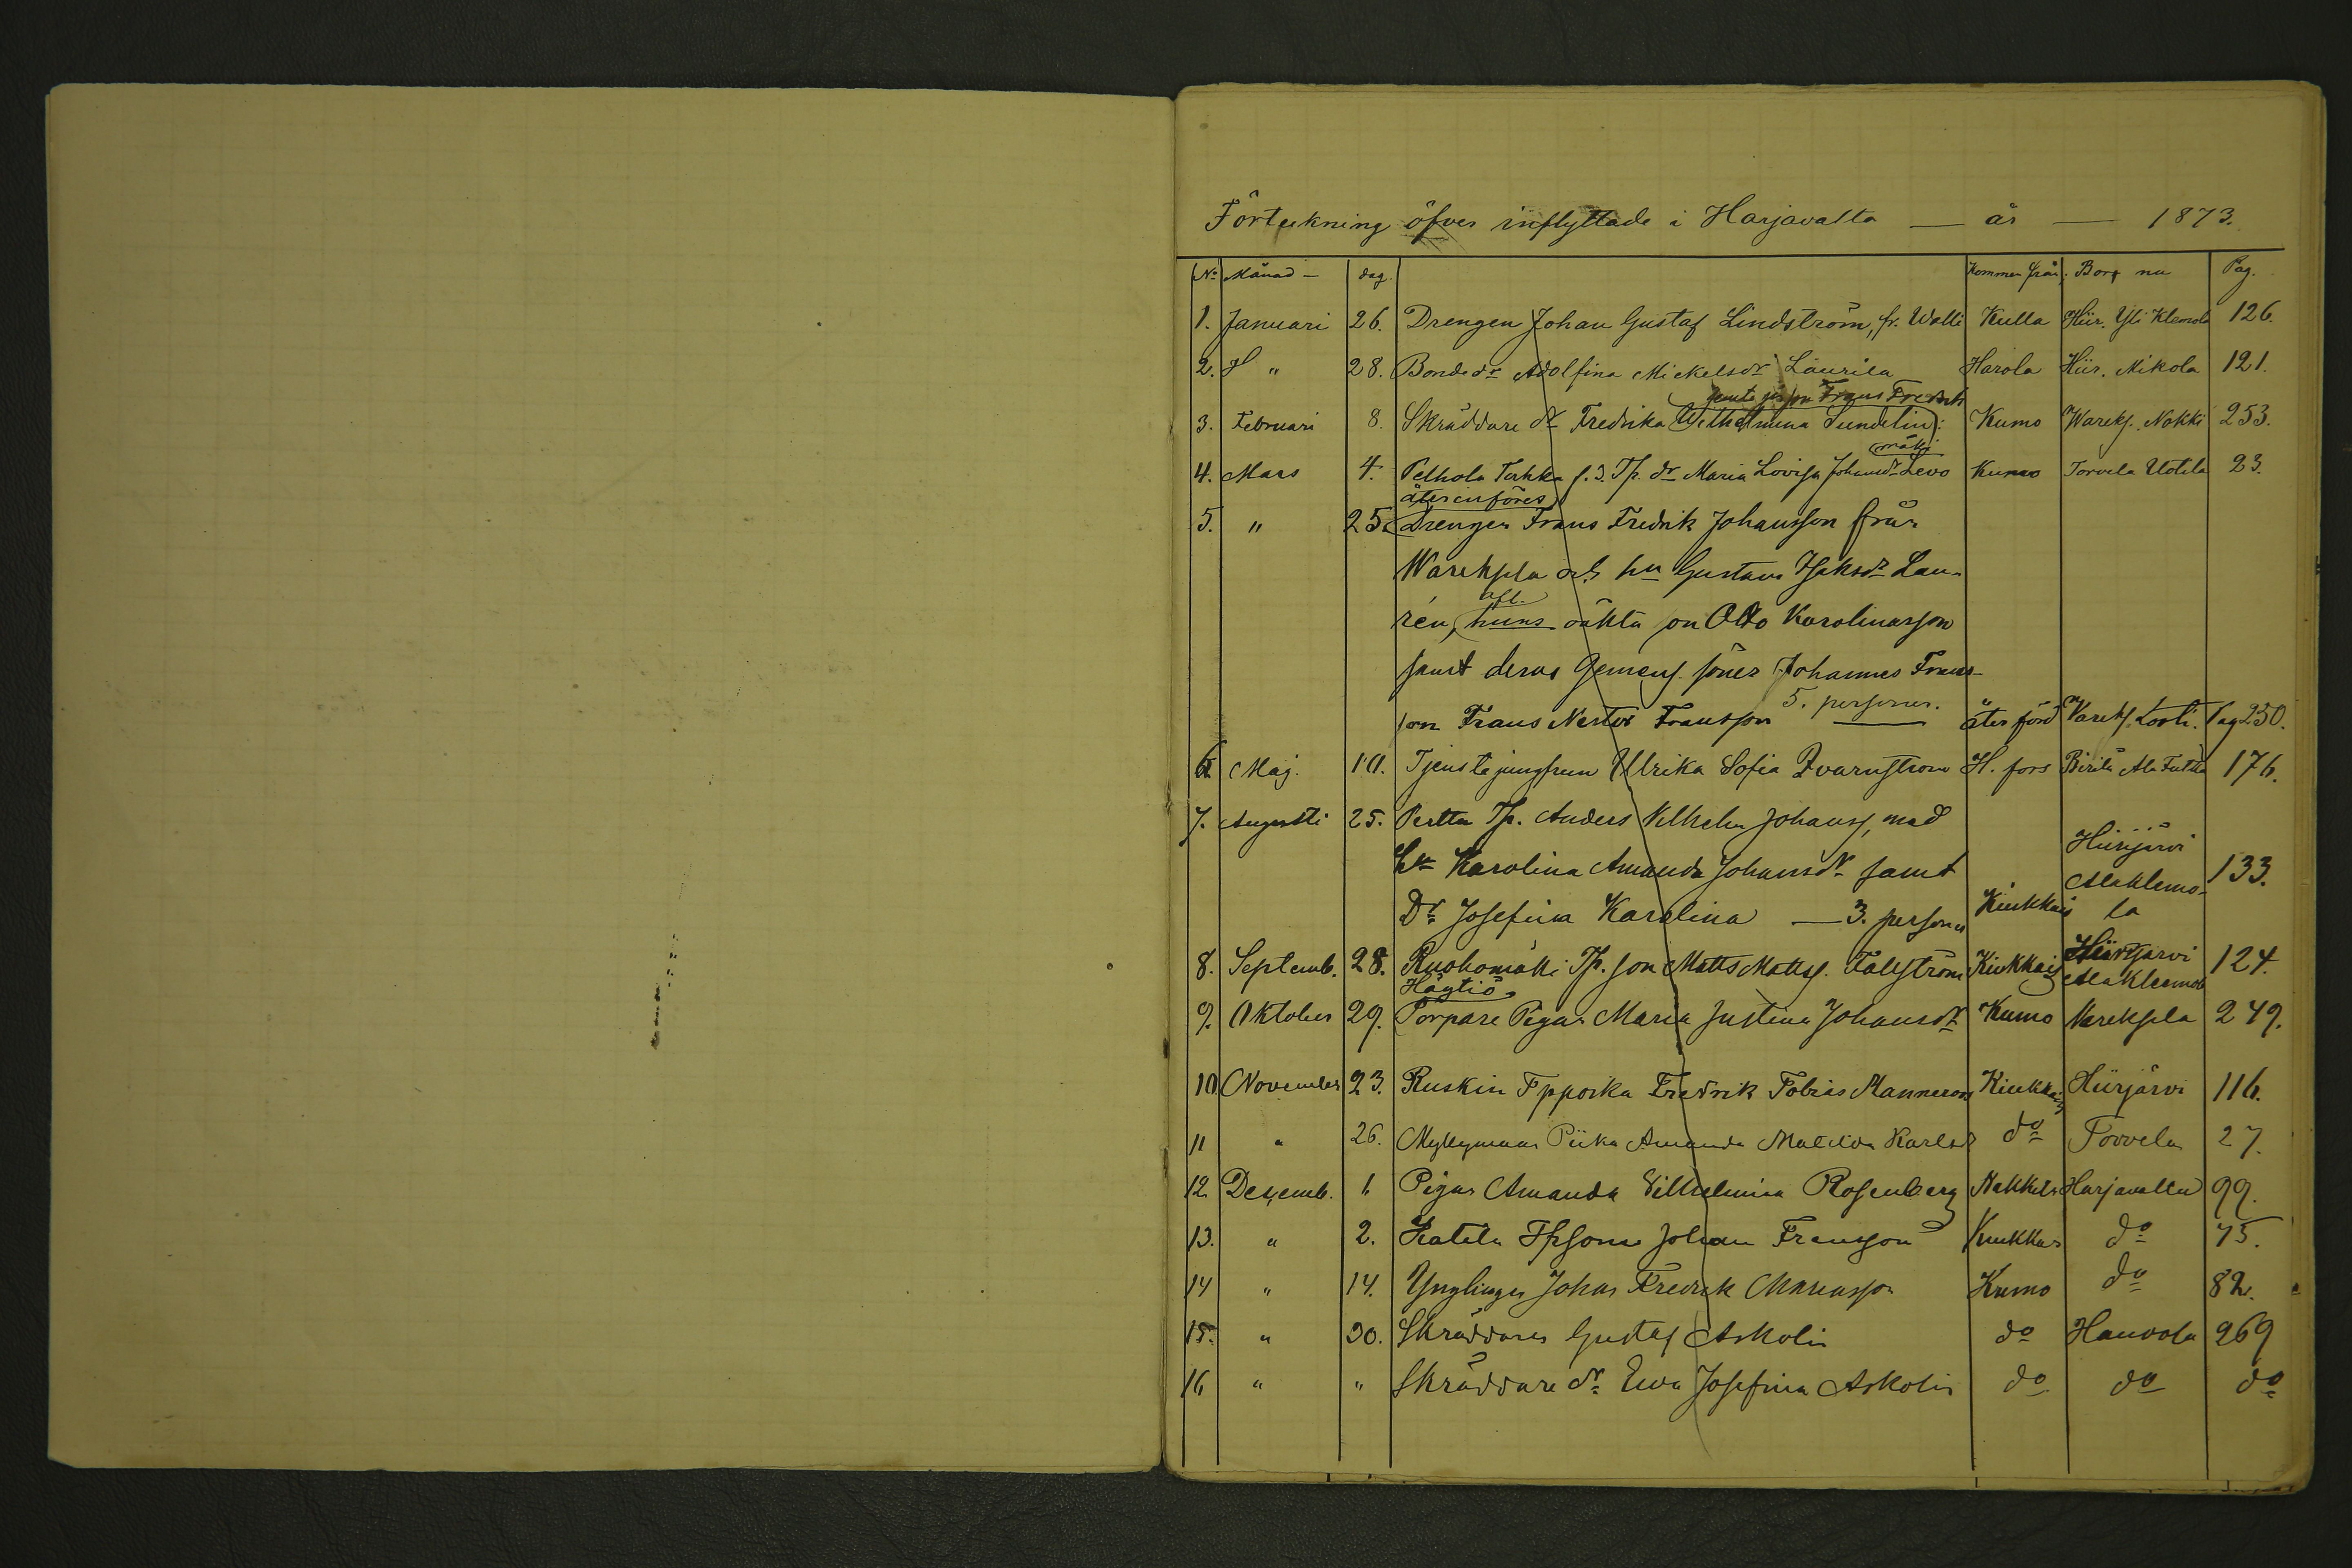 Förteckning öfver inflyttade i Harjavalta — år — 1873.
No Månad — dag. Kommen från Bor nu Pag.
1. Januari 26. Drengen Johan Gustaf Lindström, fr. Walli Kulla Hiir. Yli Klemola 126.
2. " 28. Bonde dr Adolfina Mickelsdr Laurila Harola Hiir. Mikola 121.
Frans Fredrik
3. Februari 8. Skräddare dr Fredrika Wilhelmina Sundelin Kumo Wareks. Nokki 253.
4. Mars 4. Torkka Tp. dr Maria Lovisa Johansdr Levo Kumo Torvela Uotila 23.
återinföres
5. " 25. Drengen Frans Fredrik Johansson från
Warekpla och hu Gustava Isaksdr Lau-
rén, hans oäkta son Otto Karolinasson
samt deras gemens. söner Johannes Frans-
son Frans Nestor Fransson 5. personer. återförd Vareks. Pag 250.
6. Maj. 10. Tjenstejungfrun Ulrika Sofia Qvarnström H.fors Birilä 176.
7. Augusti 25. Pertta Tp. Anders Vilhelm Johanss, med
Hu Karolina Amanda Johansdr samt Hiirijärvi
Alaklemo- 133.
Dr Josefina Karolina — 3. personer Kiukkais la
8. Septemb. 28. Ruohomäki Tp. son Matts Mattss. Fallström Kiukkais Hiirijärvi Alaklemola 124.
Häytiö
9. Oktober 29. Torpare Pigan Maria Justina Johansdr Kumo Warekpla 249.
10 November 23. Ruskin Tppoika Fredrik Tobias Manneroos Kiukkais Hiirjärvi 116.
11 " 26. Myllymaan Piika Amanda Matilda Karlsdr do Torvela 27.
12 Decemb. 1. Pigan Amanda Vilhelmina Rosenberg Nakkila Harjavalta 99.
13. " 2. Katila Tpson Johan Fransson Kiukkas do 75.
14 " 14. Ynglingen Johan Fredrik Mariasson Kumo do 82.
15. " 30. Skräddaren Gustaf Askolin do Hauvola 269
16 " " Skräddare dr Eva Josefina Askolin do do do